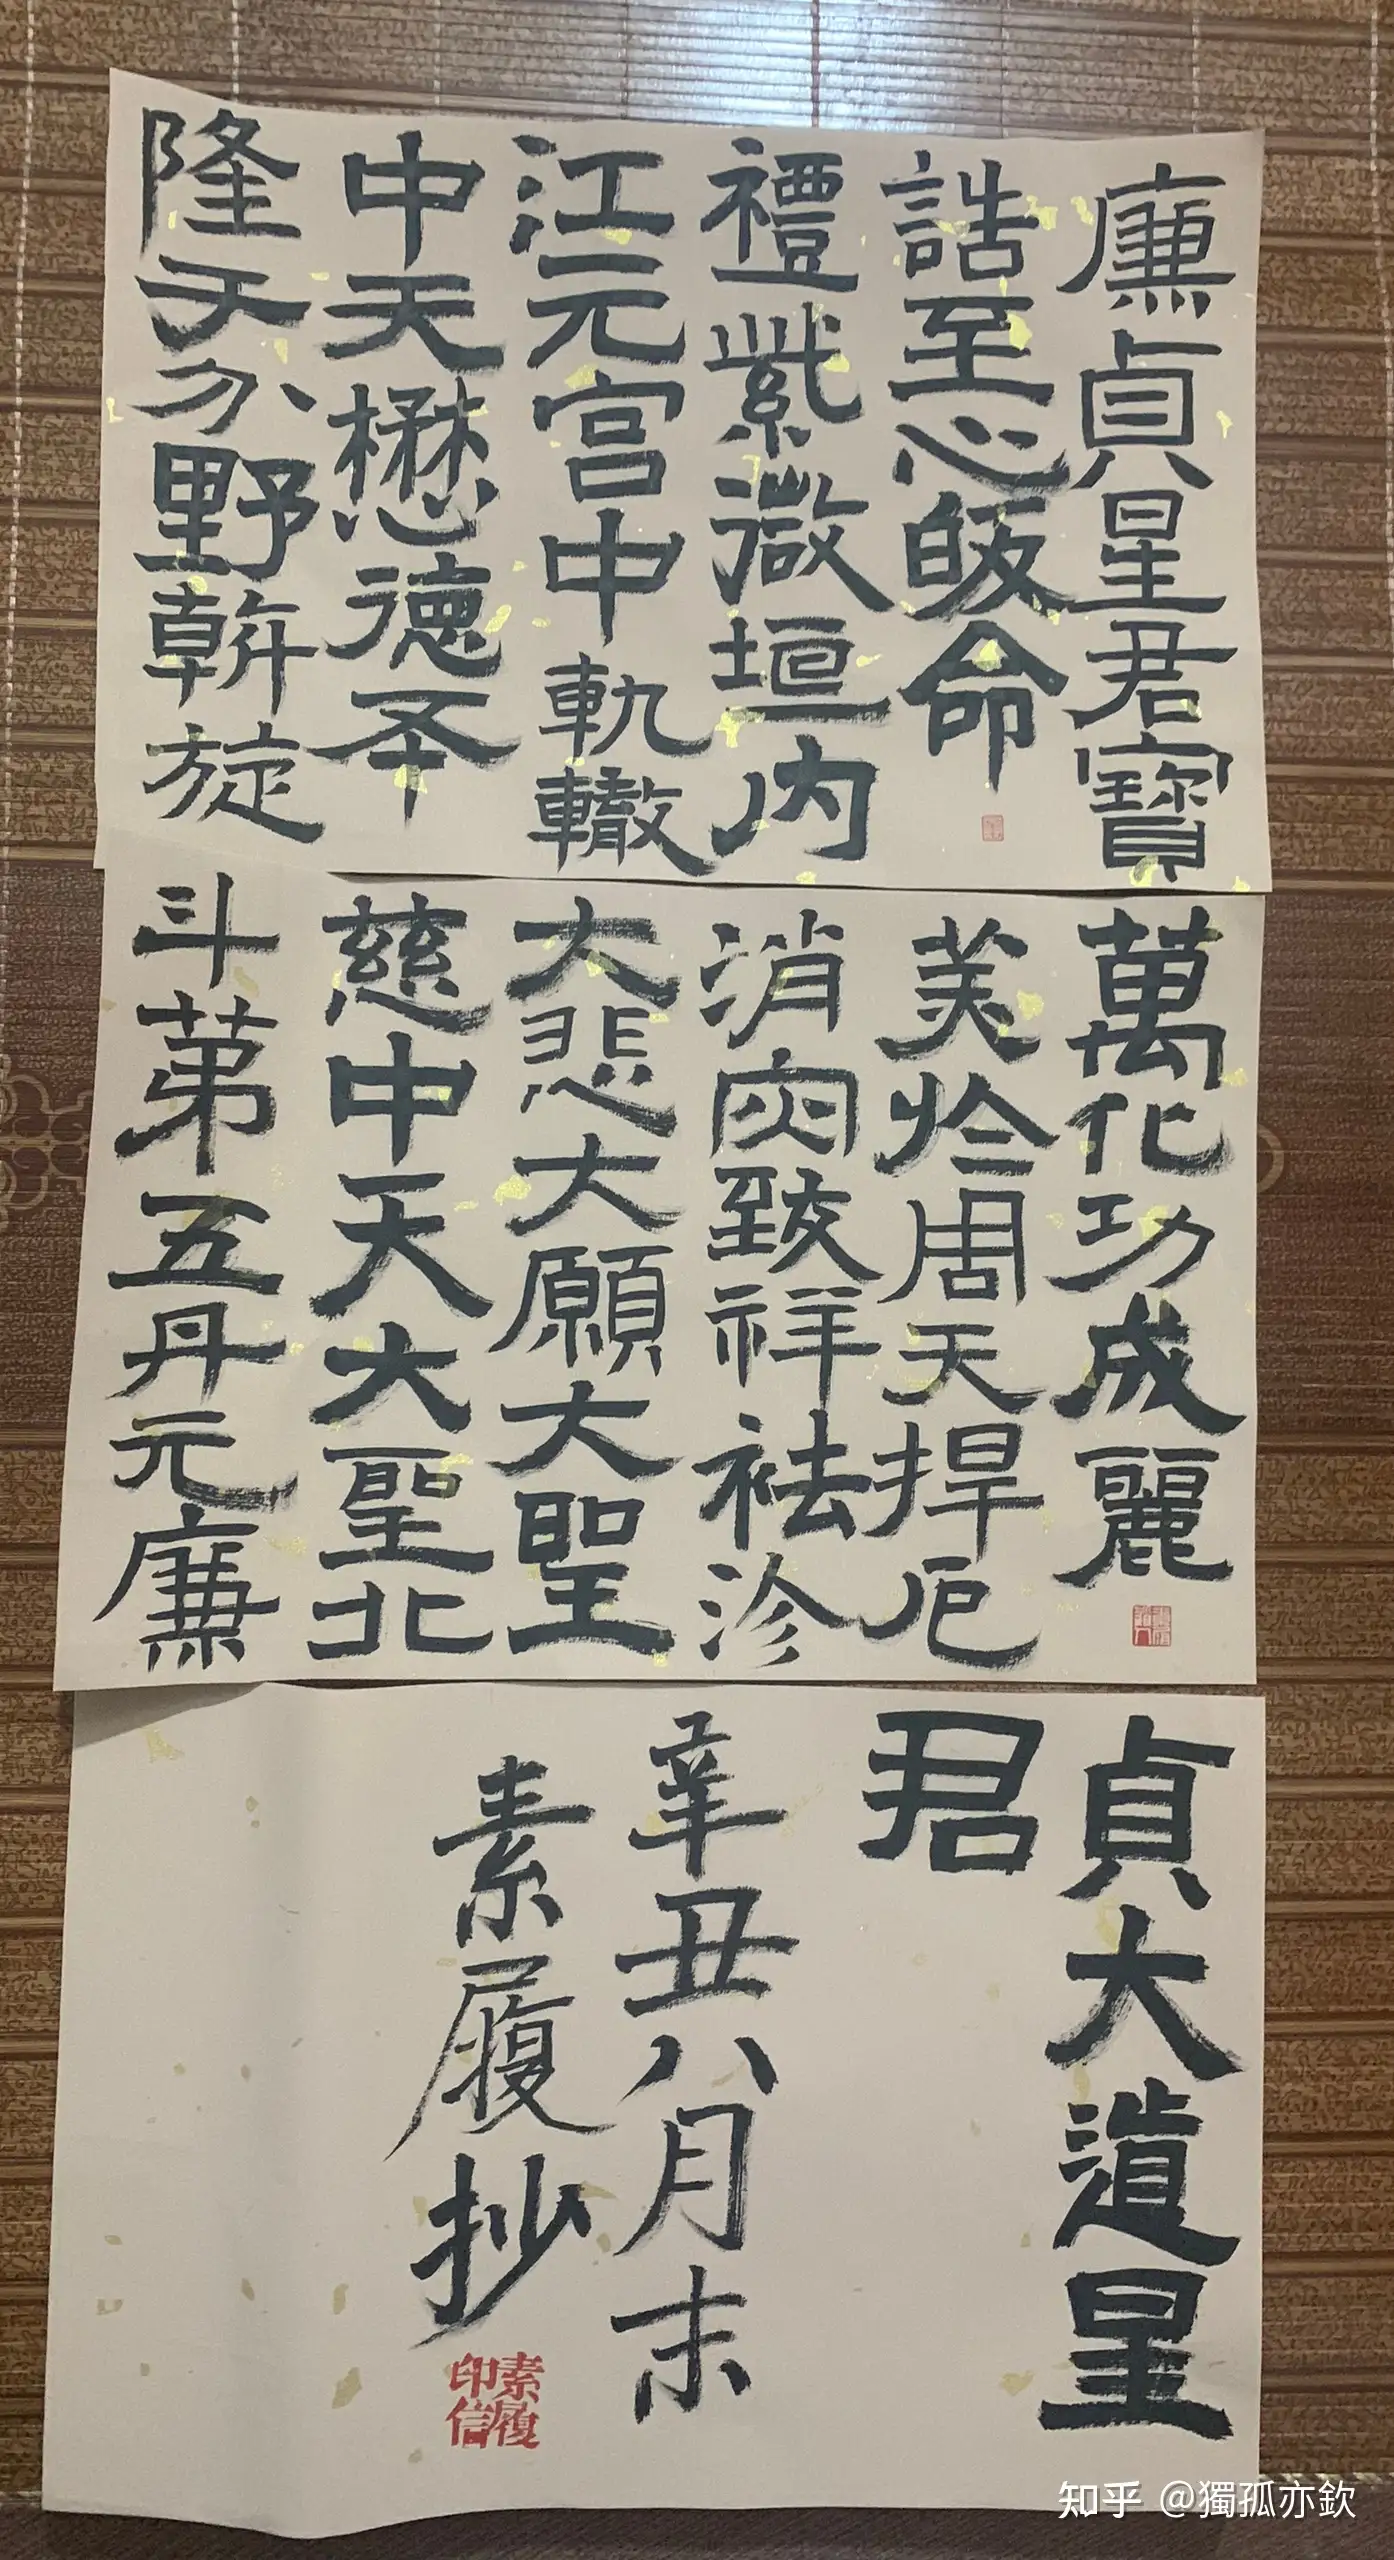 廉貞星君寶
誥至心皈命
禮紫微垣内
江元宮中軌轍
中天懋德圣
隆于分野斡旋
萬化功成麗
美扵周天捍厄
消灾致祥祛沴
大悲大願大聖
慈中天大聖北
斗苐五丹元廉
貞大道星
君
辛丑八月末
素履抄
素履
印信
知乎 @獨孤亦欽